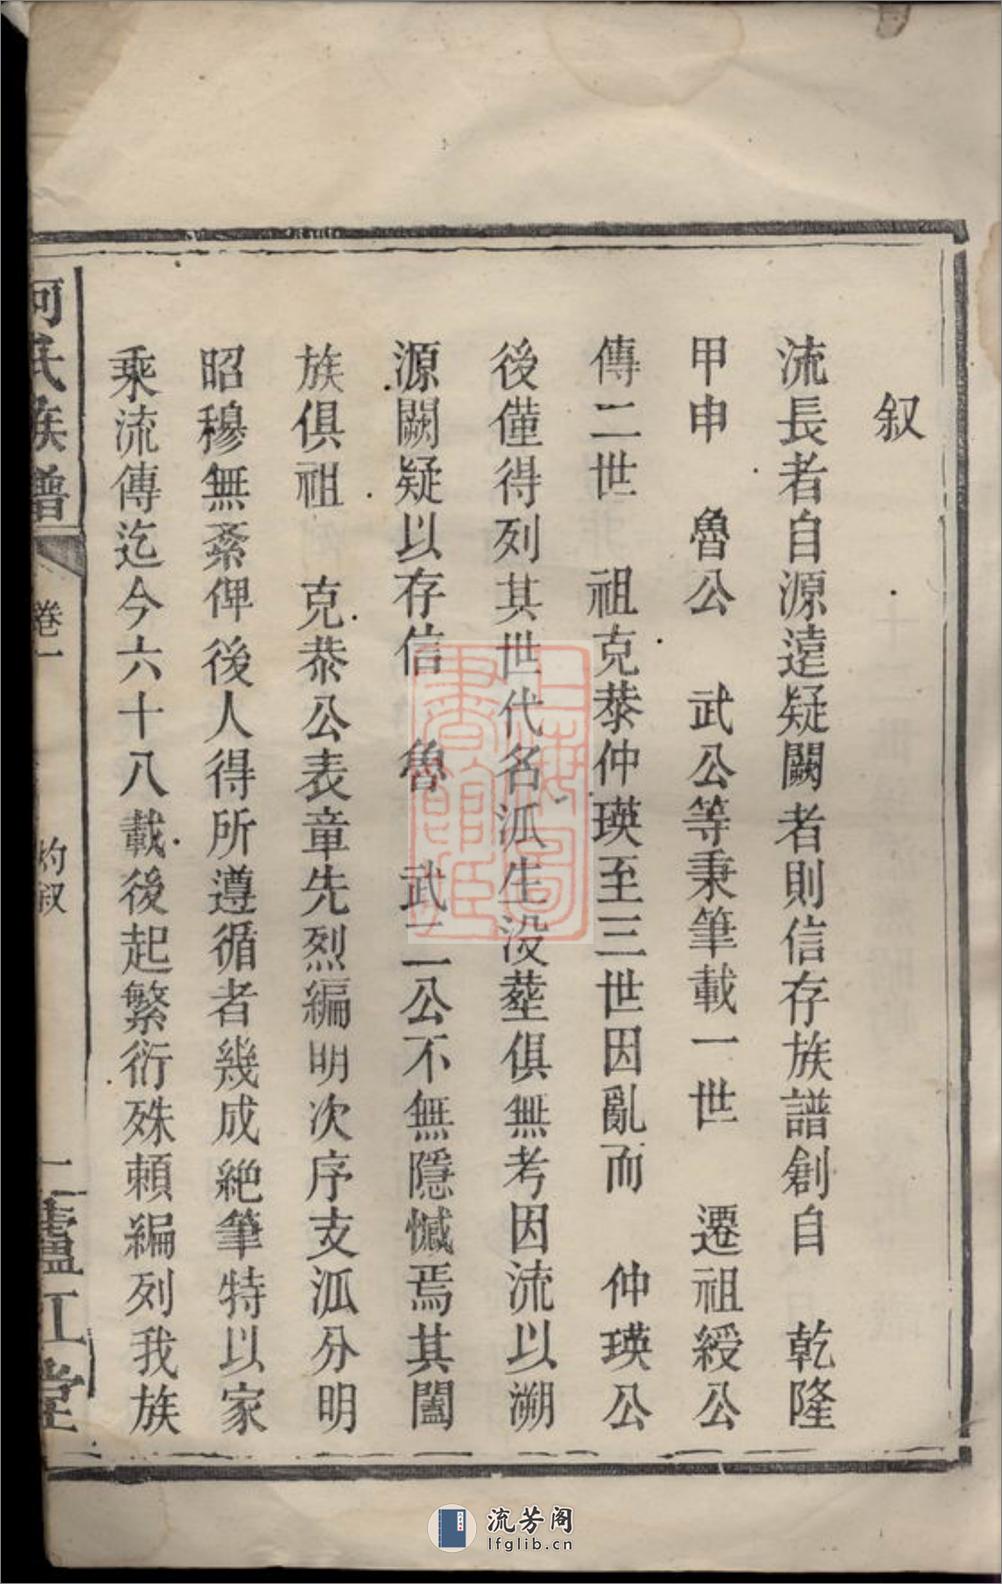 叙
流長者自源遠疑闕者則信存族譜創自　乾隆
甲申　魯公　武公等秉筆載一世　遷祖綬公
傳二世　祖克㳟仲瑛至三世因亂而　仲瑛公
後僅得列其世代名派生没塟俱無考因流以溯
源闕疑以存信　魯　武二公不無隱憾焉其闔
族俱祖　克㳟公表章先烈編明次序支派分明
昭穆無紊俾後人得所遵循者幾成絶筆特以家
乘流傳迄今六十八載後起繁衍殊頼編列我族
何氏族譜
卷一
灼叙
一
廬江堂
上海圖書館藏
流芳阁
lfglib.cn